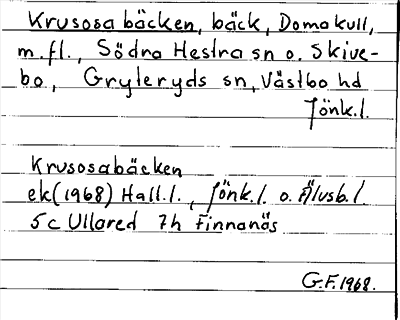 Krusosabäcken, bäck, Domakull,
m.fl., Södra Hestra sn o. Skive-
bo, Gryteryds sn, Västbo hd
Jönk.l.
Krusosabäcken
ek (1968) Hall.l., Jönk.l. o. Älvsb.l.
5c Ullared 7h Finnanäs
G.F. 1968.